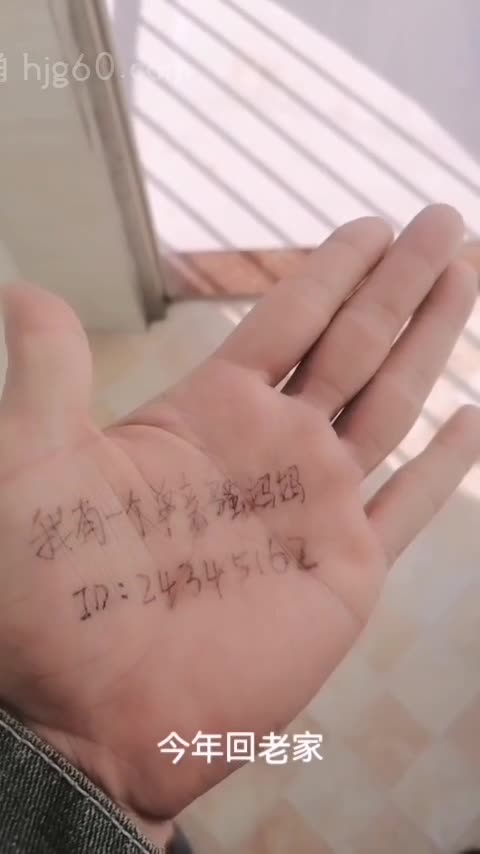 hjg60.com
我有一个单亲强妈妈
ID:24345162
今年回老家